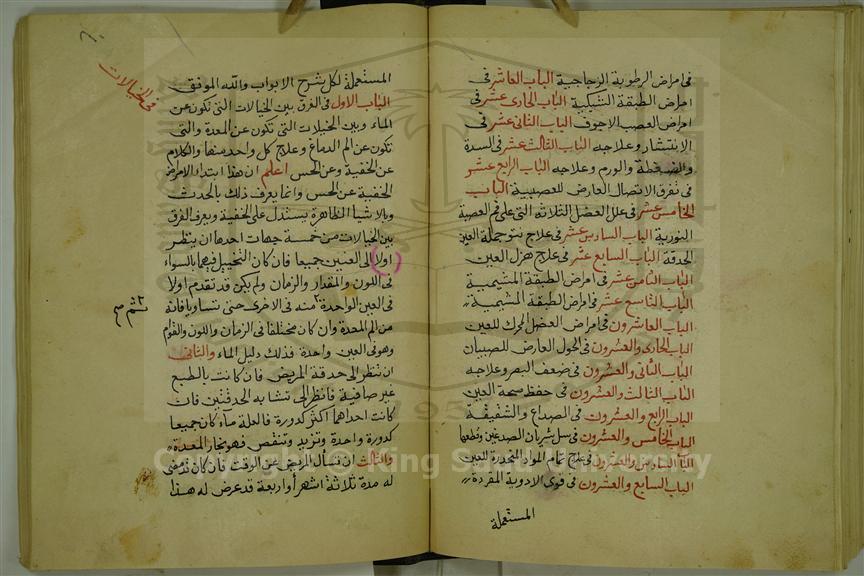 فى امراض الرطوبة الزجاجية الباب العاشر فى
امراض الطبقة الشبكية الباب الحادى عشر فى
امراض العصب الاجوف الباب الثانى عشر فى
الانتشار وعلاجه الباب الثالث عشر فى السدة
والضغطة والورم وعلاجه الباب الرابع عشر
فى تفرق الاتصال العارض للعصبية الباب
الخامس عشر فى علل العضل الثلاثه التى على فم العصبة
النورية الباب السادس عشر فى علاج نتو جملة العين
الحدقة الباب السابع عشر فى علاج هزل العين
الباب الثامن عشر فى امراض الطبقة المشيمية
الباب التاسع عشر فى امراض الطبقة المشيمية
الباب العاشرون فى امراض العضل المحرك للعين
الباب الحادى والعشرون فى الحول العارض للصبيان
الباب الثانى والعشرون فى ضعف البصر وعلاجه
الباب الثالث والعشرون فى حفظ صحة العين
الباب الرابع والعشرون فى الصداع والشقيقة
الباب الخامس والعشرون فى سل شريان الصدغين وقطعها
الباب السادس والعشرون فى علاج تمام المواد المنحدرة للعين
الباب السابع والعشرون فى قوى الادوية المفردة
المستعملة
فى الخيالات
المستعملة لكل شرح الابواب والله الموفق
الباب الاول فى الفرق بين الخيالات التى تكون عن
الماء وبين الخيلات التى تكون عن المعدة والتى
تكون عن الم الدماغ وعلاج كل واحد منها والكلام
عن الخفية وعن الحس اعلم ان هذا ابتدا الامراض
الخفية عن الحس وانما يعرف ذلك بالحدث
وبالاشيا الظاهرة يستدل على الخفية ويعرف الفرق
بين الخيالات من خمسة جهات احدها ان ينظر
اولا الى العنين جميعا فان كان التخييل فيهما بالسواء
فى اللون والمقدار والزمان ولم يكن قد تقدم اولا
فى العين الواحدة منه فى الاخرى حتى تساويا فانه
ثم صح
من الم المعدة وان كان مختلفا فى الزمان واللون والقوام
وهو فى العين واحدة فذلك دليل الماء والثانى
ان تنظر الى حدقة المريض فان كانت بالطبع
غير صافية فانظر الى تشابه الحدقتين فان
كانت احداهما اكثر كدورة فالعلة ماء كان جميعا
كدورة واحدة وتزيد وتنقص فهو بخار المعدة
والثالث ان تسال المريض عن الوقت فان كان قد مضى
له مدة ثلاثة اشهر أو اربعة قد عرض له هذا
Copyright © King Saud University